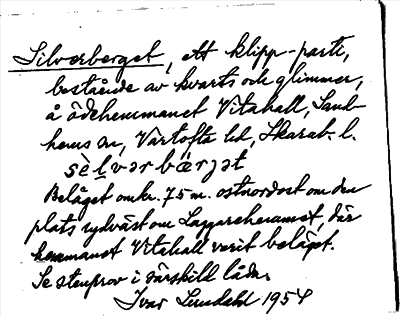 Silverberget, ett klipp-parti,
bestående av kvarts och glimmer,
å ödehemmanet Vitahall, Sand-
hems sn, Vartofta hd, Skarab. l.
sèlvərbærjət
Beläget omkr. 75 m. ostnordost om den
plats sydväst om Laggarehemmet, där
hemmanet Vitahall varit beläget.
Se stenprov i särskild låda.
Ivar Lundahl 1954